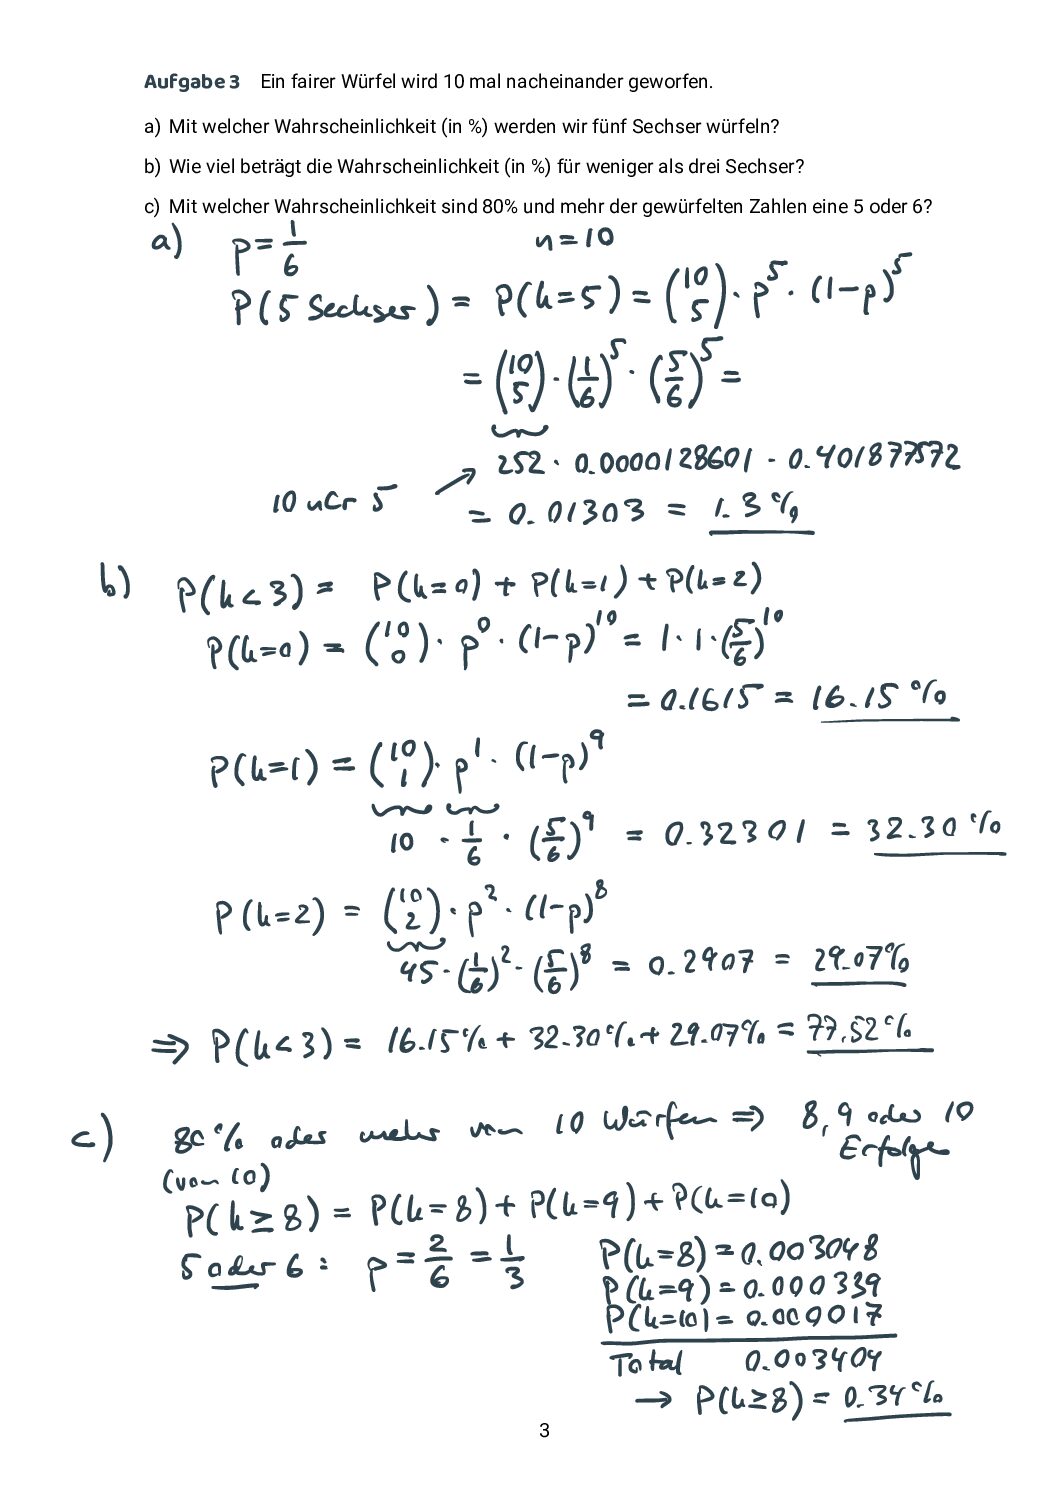 Aufgabe 3 Ein fairer Würfel wird 10 mal nacheinander geworfen.
a) Mit welcher Wahrscheinlichkeit (in %) werden wir fünf Sechser würfeln?
b) Wie viel beträgt die Wahrscheinlichkeit (in %) für weniger als drei Sechser?
c) Mit welcher Wahrscheinlichkeit sind 80% und mehr der gewürfelten Zahlen eine 5 oder 6?
a) p = 1/6 n = 10
P(5 Sechser) = P(k=5) = (10 5) · p^5 · (1-p)^5
= (10 5) · (1/6)^5 · (5/6)^5 =
252 · 0.0000128601 · 0.401877572
10 nCr 5 = 0.01303 = 1.3%
b) P(k<3) = P(k=0) + P(k=1) + P(k=2)
P(k=0) = (10 0) · p^0 · (1-p)^10 = 1·1·(5/6)^10
= 0.1615 = 16.15%
P(k=1) = (10 1) · p^1 · (1-p)^9
10 · 1/6 · (5/6)^9 = 0.32301 = 32.30%
P(k=2) = (10 2) · p^2 · (1-p)^8
45 · (1/6)^2 · (5/6)^8 = 0.2907 = 29.07%
⇒ P(k<3) = 16.15% + 32.30% + 29.07% = 77.52%
c) 80% oder mehr von 10 Würfen ⇒ 8, 9 oder 10
Erfolge
(von 10)
P(k≥8) = P(k=8) + P(k=9) + P(k=10)
5 oder 6: p = 2/6 = 1/3
P(k=8) = 0.003048
P(k=9) = 0.000339
P(k=10) = 0.000017
Total 0.003404
→ P(k≥8) = 0.34%
3